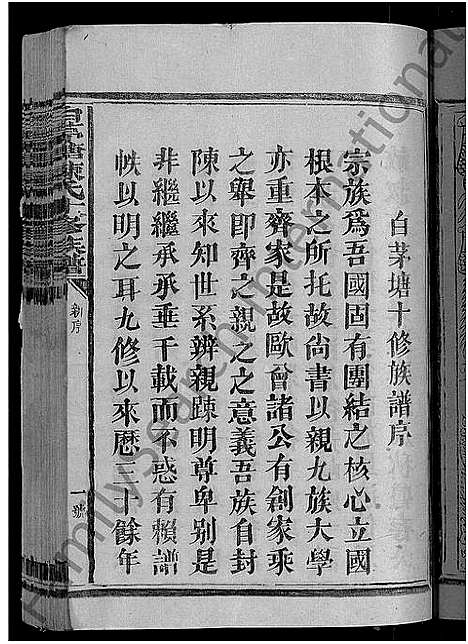 白茅塘十修族譜序
宗族爲吾國固有團結之核心立國
根本之所托故尙書以親九族大學
亦重齊家是故歐曾諸公有創家乘
之舉卽齊之親之之意義吾族自封
陳以來知世系辨親踈明尊卑别是
非繼繼承承垂千載而不惑有賴譜
帙以明之耳九修以來歷三十餘年
陳氏十修族譜
新序
一號
FamilySearch International